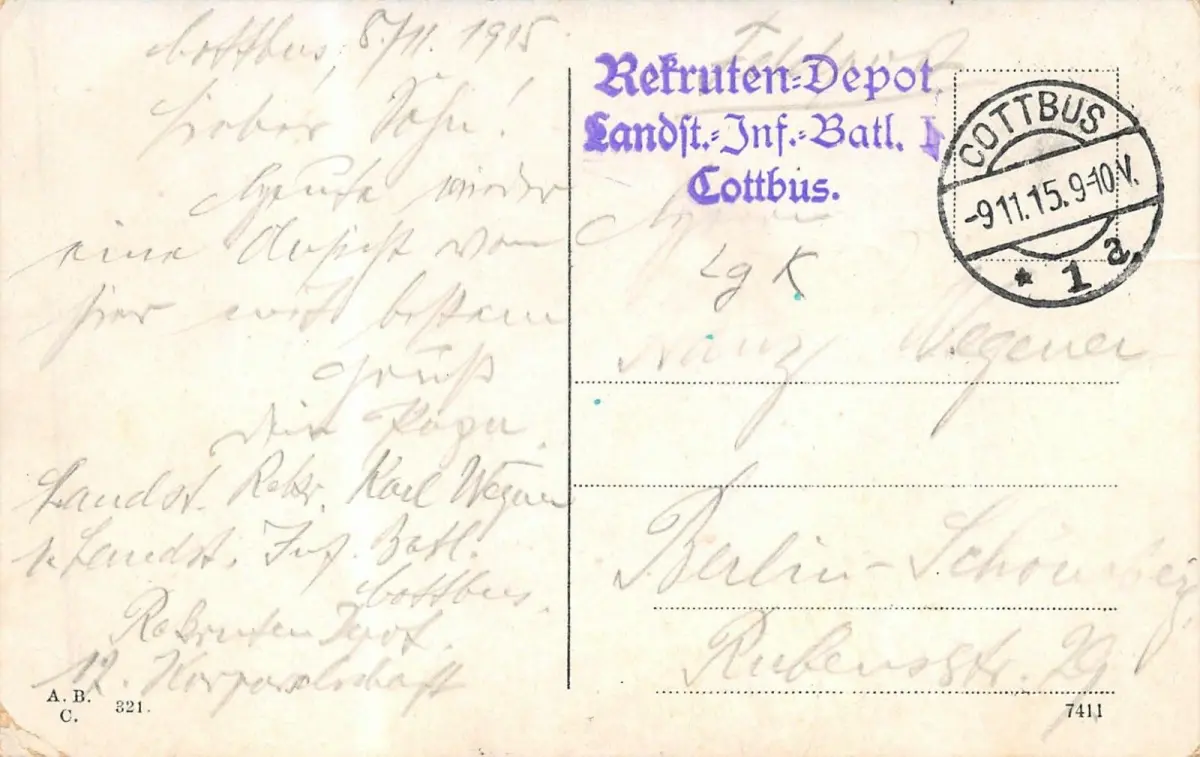 Cottbus, 8/11. 1915
Lieber Sohn!
Heute wieder
eine Ansicht von
hier mit bestem
Gruß
dein Papa.
Landst. Rekr. Karl Wegener
1. Landst. Inf. Batl.
Cottbus.
Rekruten Depot.
12. Korporalschaft
A. B.
C.
321.
Feldpost
Rekruten-Depot
Landst.-Inf.-Batl. I
Cottbus.
COTTBUS
-9 11.15.9-10V.
* 1 a
Herrn
Franz Wegener
Berlin-Schöneberg
Rubensstr. 29
7411